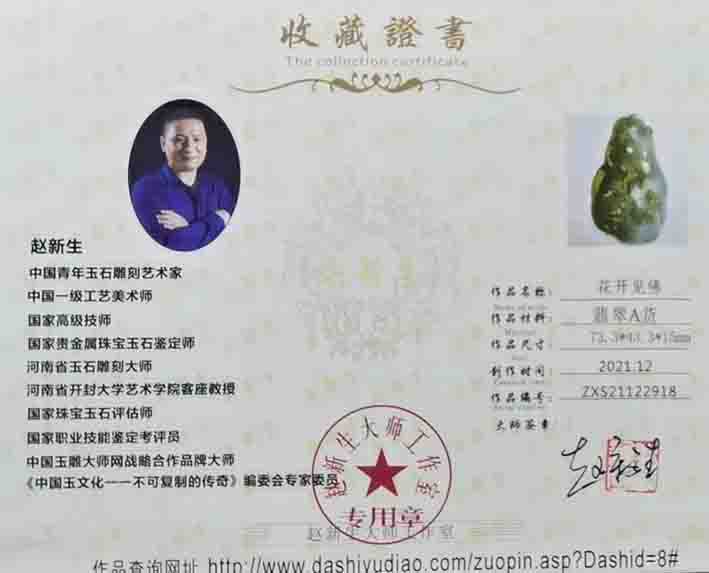 收藏證書
The collection certificate
赵新生
中国青年玉石雕刻艺术家
中国一级工艺美术师
国家高级技师
国家贵金属珠宝玉石鉴定师
河南省玉石雕刻大师
河南省开封大学艺术学院客座教授
国家珠宝玉石评估师
国家职业技能鉴定考评员
中国玉雕大师网战略合作品牌大师
《中国玉文化一一不可复制的传奇》编委会专家委员
作品名称: 花开见佛
作品材料: 翡翠A货
作品尺寸:
创作时间: 2021.12
作品编号: ZXS21122918
大师签章
赵新生大师工作室
专用章
赵新生大师工作室
作品查询网址 http://www.dashiyudiao.com/zuopin.asp?Dashid=8#